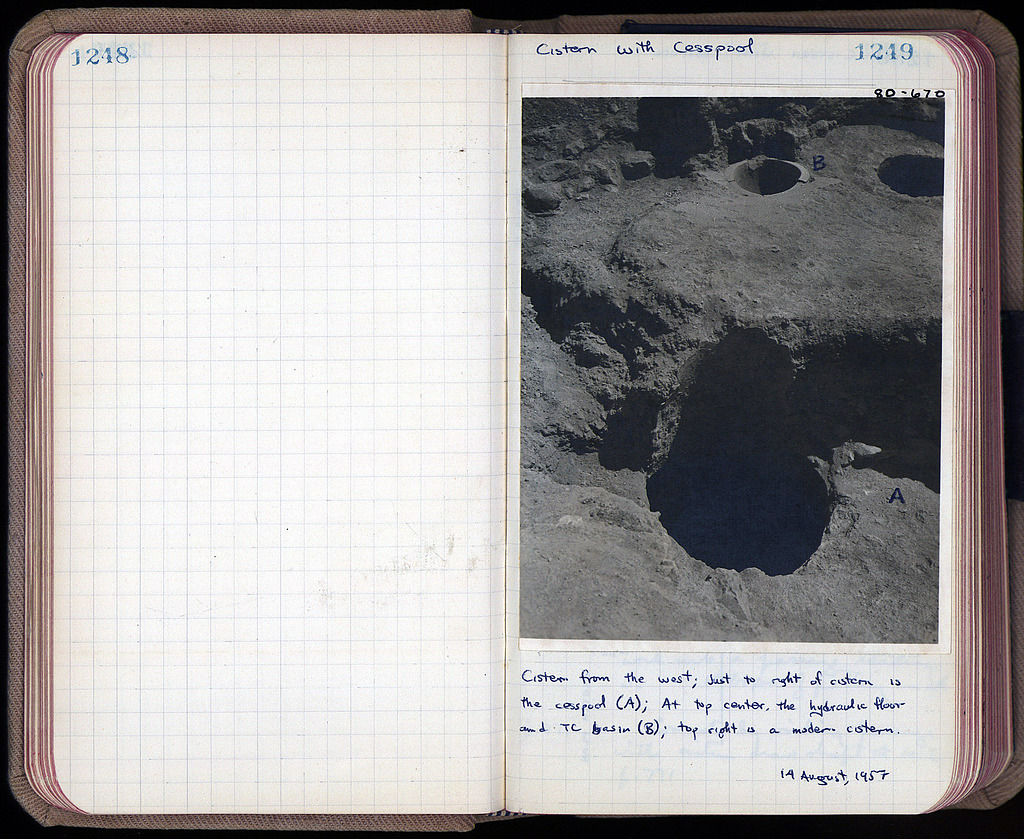 1248
Cistern with Cesspool
1249
80-670
B
A
Cistern from the west; Just to right of cistern is
the cesspool (A); At top center, the hydraulic floor
and TC basin (B); top right is a modern cistern.
14 August, 1957